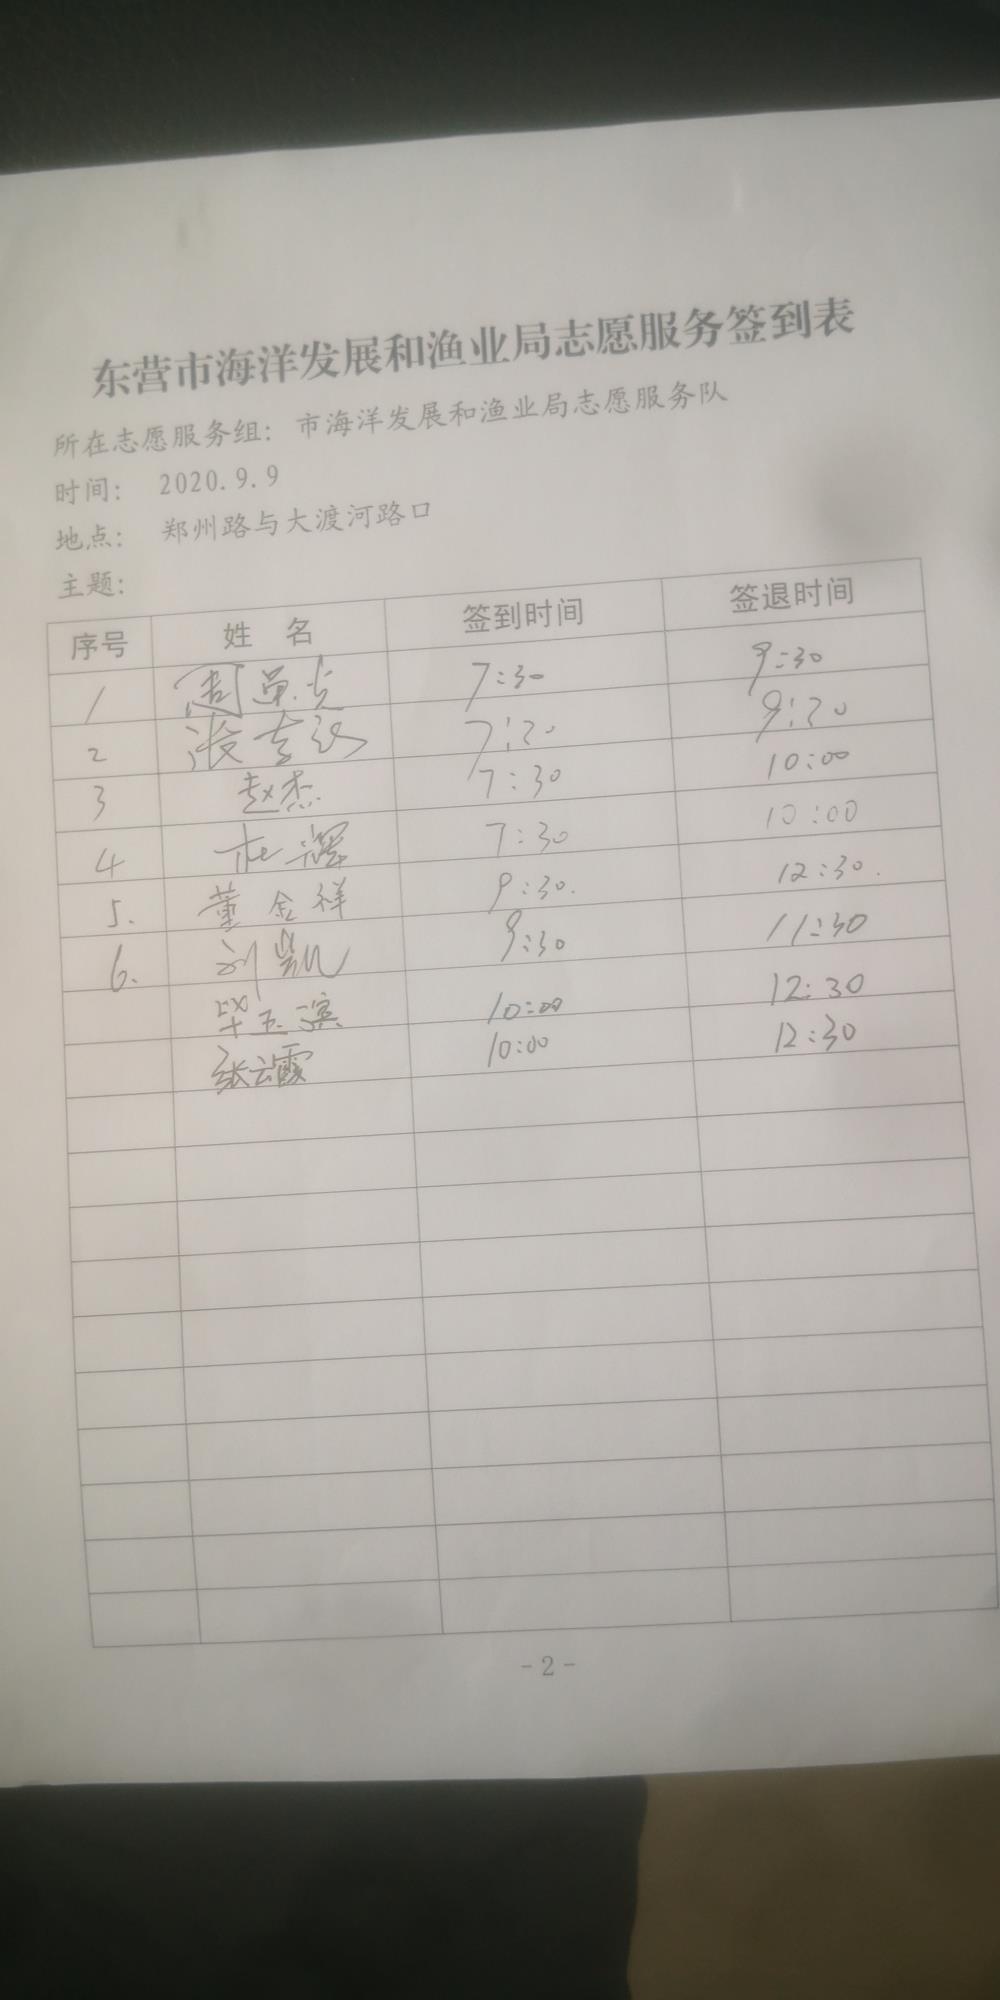 东营市海洋发展和渔业局志愿服务签到表
所在志愿服务组: 市海洋发展和渔业局志愿服务队
时间: 2020.9.9
地点: 郑州路与大渡河路口
主题:
序号 姓 名 签到时间 签退时间
1 周 7:30 9:30
2 张 7:20 9:20
3 赵杰 7:30 10:00
4 杜 7:30 10:00
5. 董金祥 9:30. 12:30.
6. 刘凯 9:30 11:30
毕玉滨 10:00 12:30
张云霞 10:00 12:30
-2-